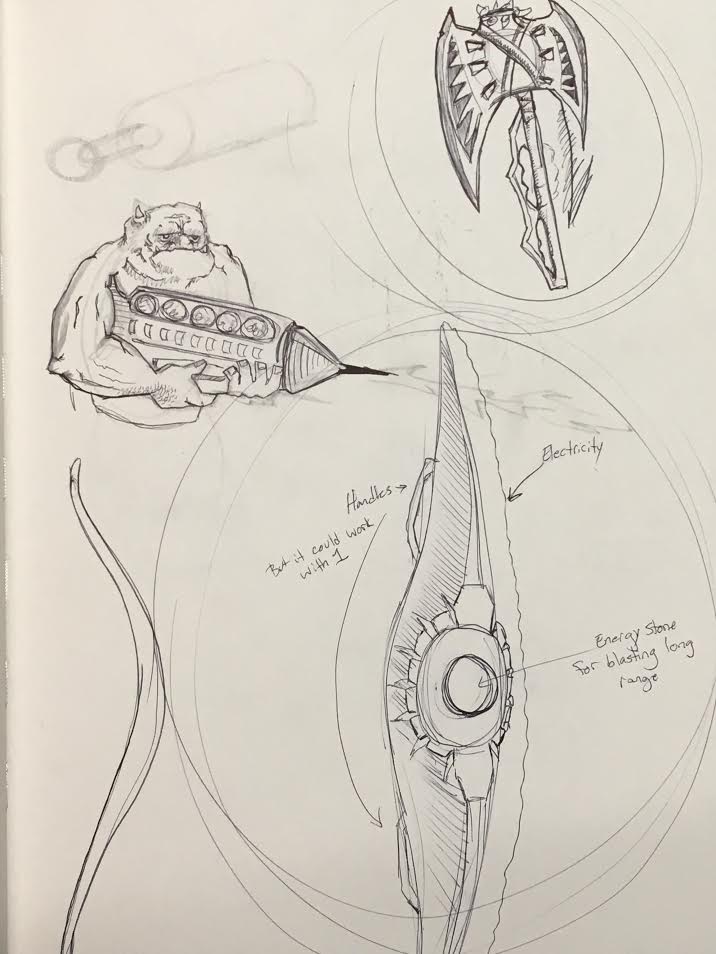 Electricity
Handles
But it could work
with 1
Energy Stone
for blasting long
range